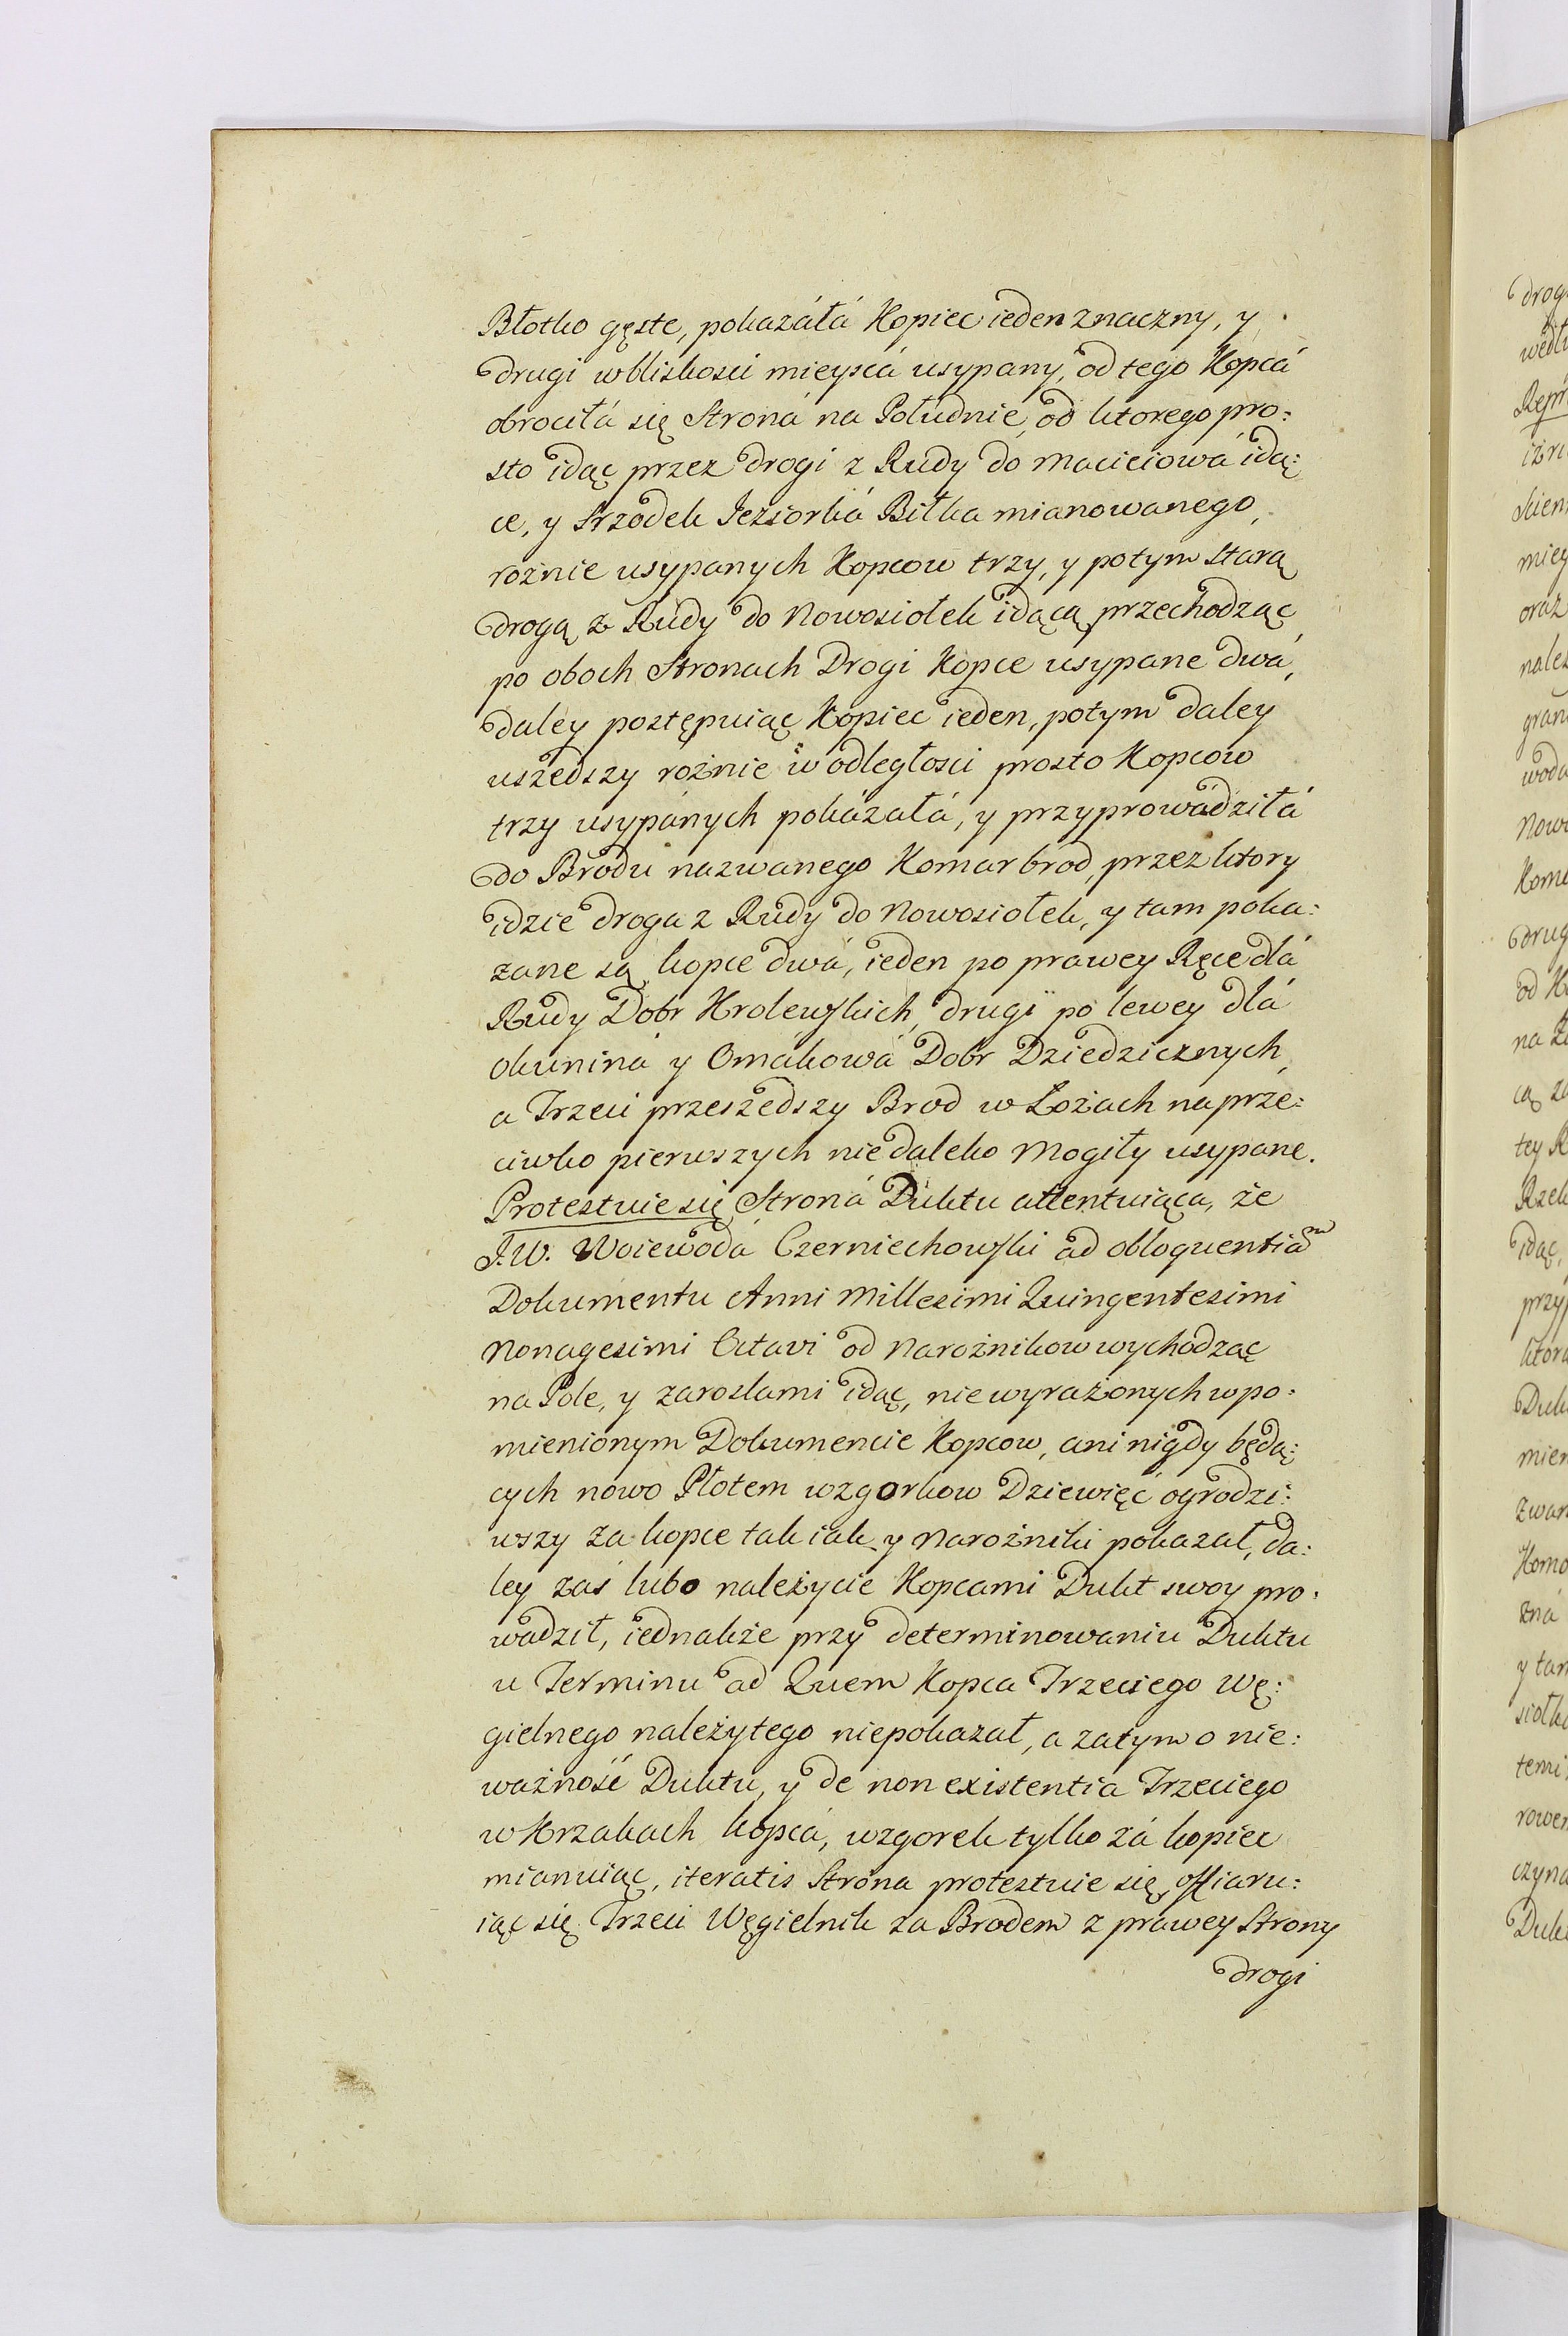 Błotko gęste, pokazáłá Kopiec ieden znaczny, y
drugi wbliskosci mieyscá usypany, od tego Kopcá
obrociłá się Stroná na Południe, od ktorego pro:
sto idąc przez drogi z Rudy do Maciciowá idą:
ce, y srzodek Jeziorká Biłka mianowanego,
rożnie usypanych Kopcow trzy, y potym starą
drogą z Rudy do Nowosiołek idącą przechodząc
po oboch Stronach Drogi Kopce usypane dwá,
daley postępuiąc Kopiec ieden, potym daley
uszedszy rożnie w odległosci prosto Kopcow
trzy usypánych pokázałá, y przyprowádziłá
do Brodu nazwanego Komar brod, przez ktory
idzie droga z Rudy do Nowosiołek, y tam poka:
zane są kopce dwá, ieden po prawey Ręce dlá
Rudy Dobr Krolewskich, drugi po lewey dlá
okuniná y Omákowá Dobr Dziedzicznych,
a Trzeci przeszedszy Brod w Łożach naprze:
ciwko pierwszych niedaleko Mogiły usypane.
Protestuie się Stroná Duktu attentuiąca, że
J.W. Woiewodá Czerniechowski ad obloquentiam
Dokumentu Anni Millesimi Quingentesimi
Nonagesimi Octavi od Narożnikow wychodząc
na Pole, y zaroslami idąc, niewyrażonych wpo:
mienionym Dokumencie Kopcow, ani nigdy będą:
cych nowo Płotem wzgorkow Dziewięć ogrodzi:
wszy za kopce tak iak y Narożniki pokazał, da:
ley zaś lubo należycie Kopcami Dukt swoy pro:
wadził, iednakże przy determinowaniu Duktu
u Terminu ad Quem Kopca Trzeciego Wę:
gielnego należytego niepokazał, a zatym o nie:
ważność Duktu, y de non existentia Trzeciego
w Krzakach kopcá, wzgorek tylko zá kopiec
mianuiąc, iteratis Strona protestuie się, offiaru:
iąc się Trzeci Węgielnik za Brodem z prawey Strony
drogi